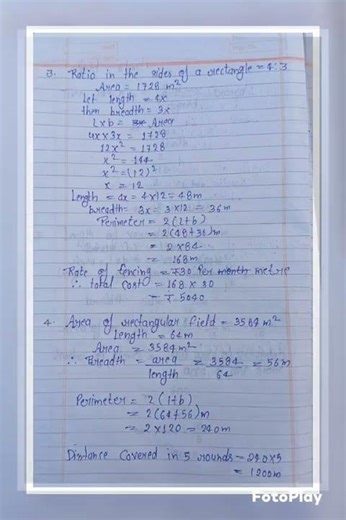 3. Ratio in the sides of a rectangle = 4:3
Area = 1728 m²
Let length = 4x
then breadth = 3x
l x b = Area
4x x 3x = 1728
12x² = 1728
x² = 144
x² = (12)²
x = 12
Length = 4x = 4x12 = 48m
breadth = 3x = 3x12 = 36m
Perimeter = 2(l+b)
= 2(48+36)m
= 2x84
= 168m
Rate of fencing = ₹30 per month metre
∴ total cost = 168 x 30
= ₹ 5040
4. Area of rectangular field = 3584 m²
Length = 64m
Area = 3584 m²
∴ Breadth = area/length = 3584/64 = 56m
Perimeter = 2(l+b)
= 2(64+56)m
= 2x120 = 240m
Distance Covered in 5 rounds = 240x5
= 1200m
FotoPlay